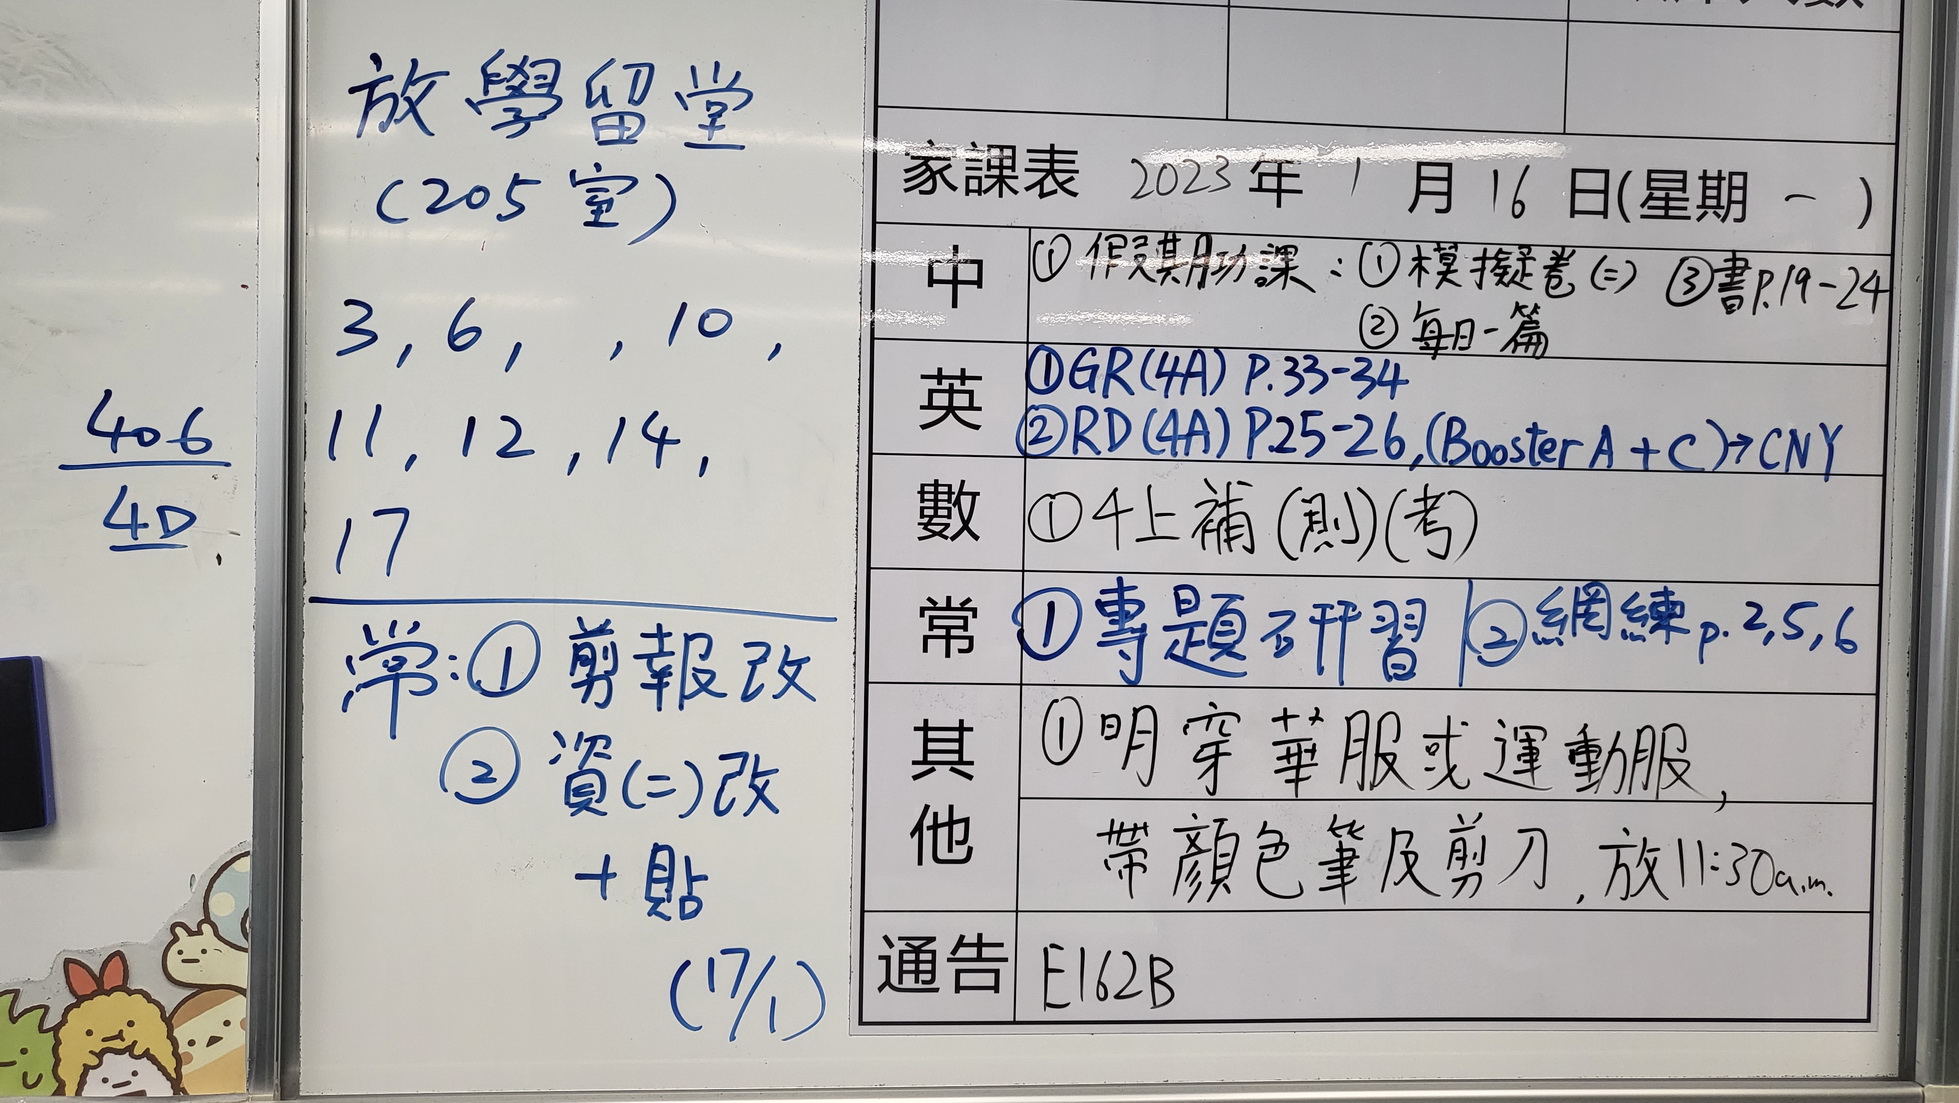 406
4D
放學留堂
(205室)
3, 6, , 10,
11, 12, 14,
17
常:① 剪報改
② 資(二)改
+貼
(17/1)
家課表 2023年 1月16日(星期一)
中 ① 假期功課:① 模擬卷(二) ③書p.19-24
② 每日一篇
英 ①GR(4A) P.33-34
②RD(4A) P.25-26,(Booster A + C)→CNY
數 ①4上補(則)(考)
常 ①專題研習 ②網練p. 2,5,6
其他 ①明穿華服或運動服,
帶顏色筆及剪刀,放11:30a.m.
通告 E162B